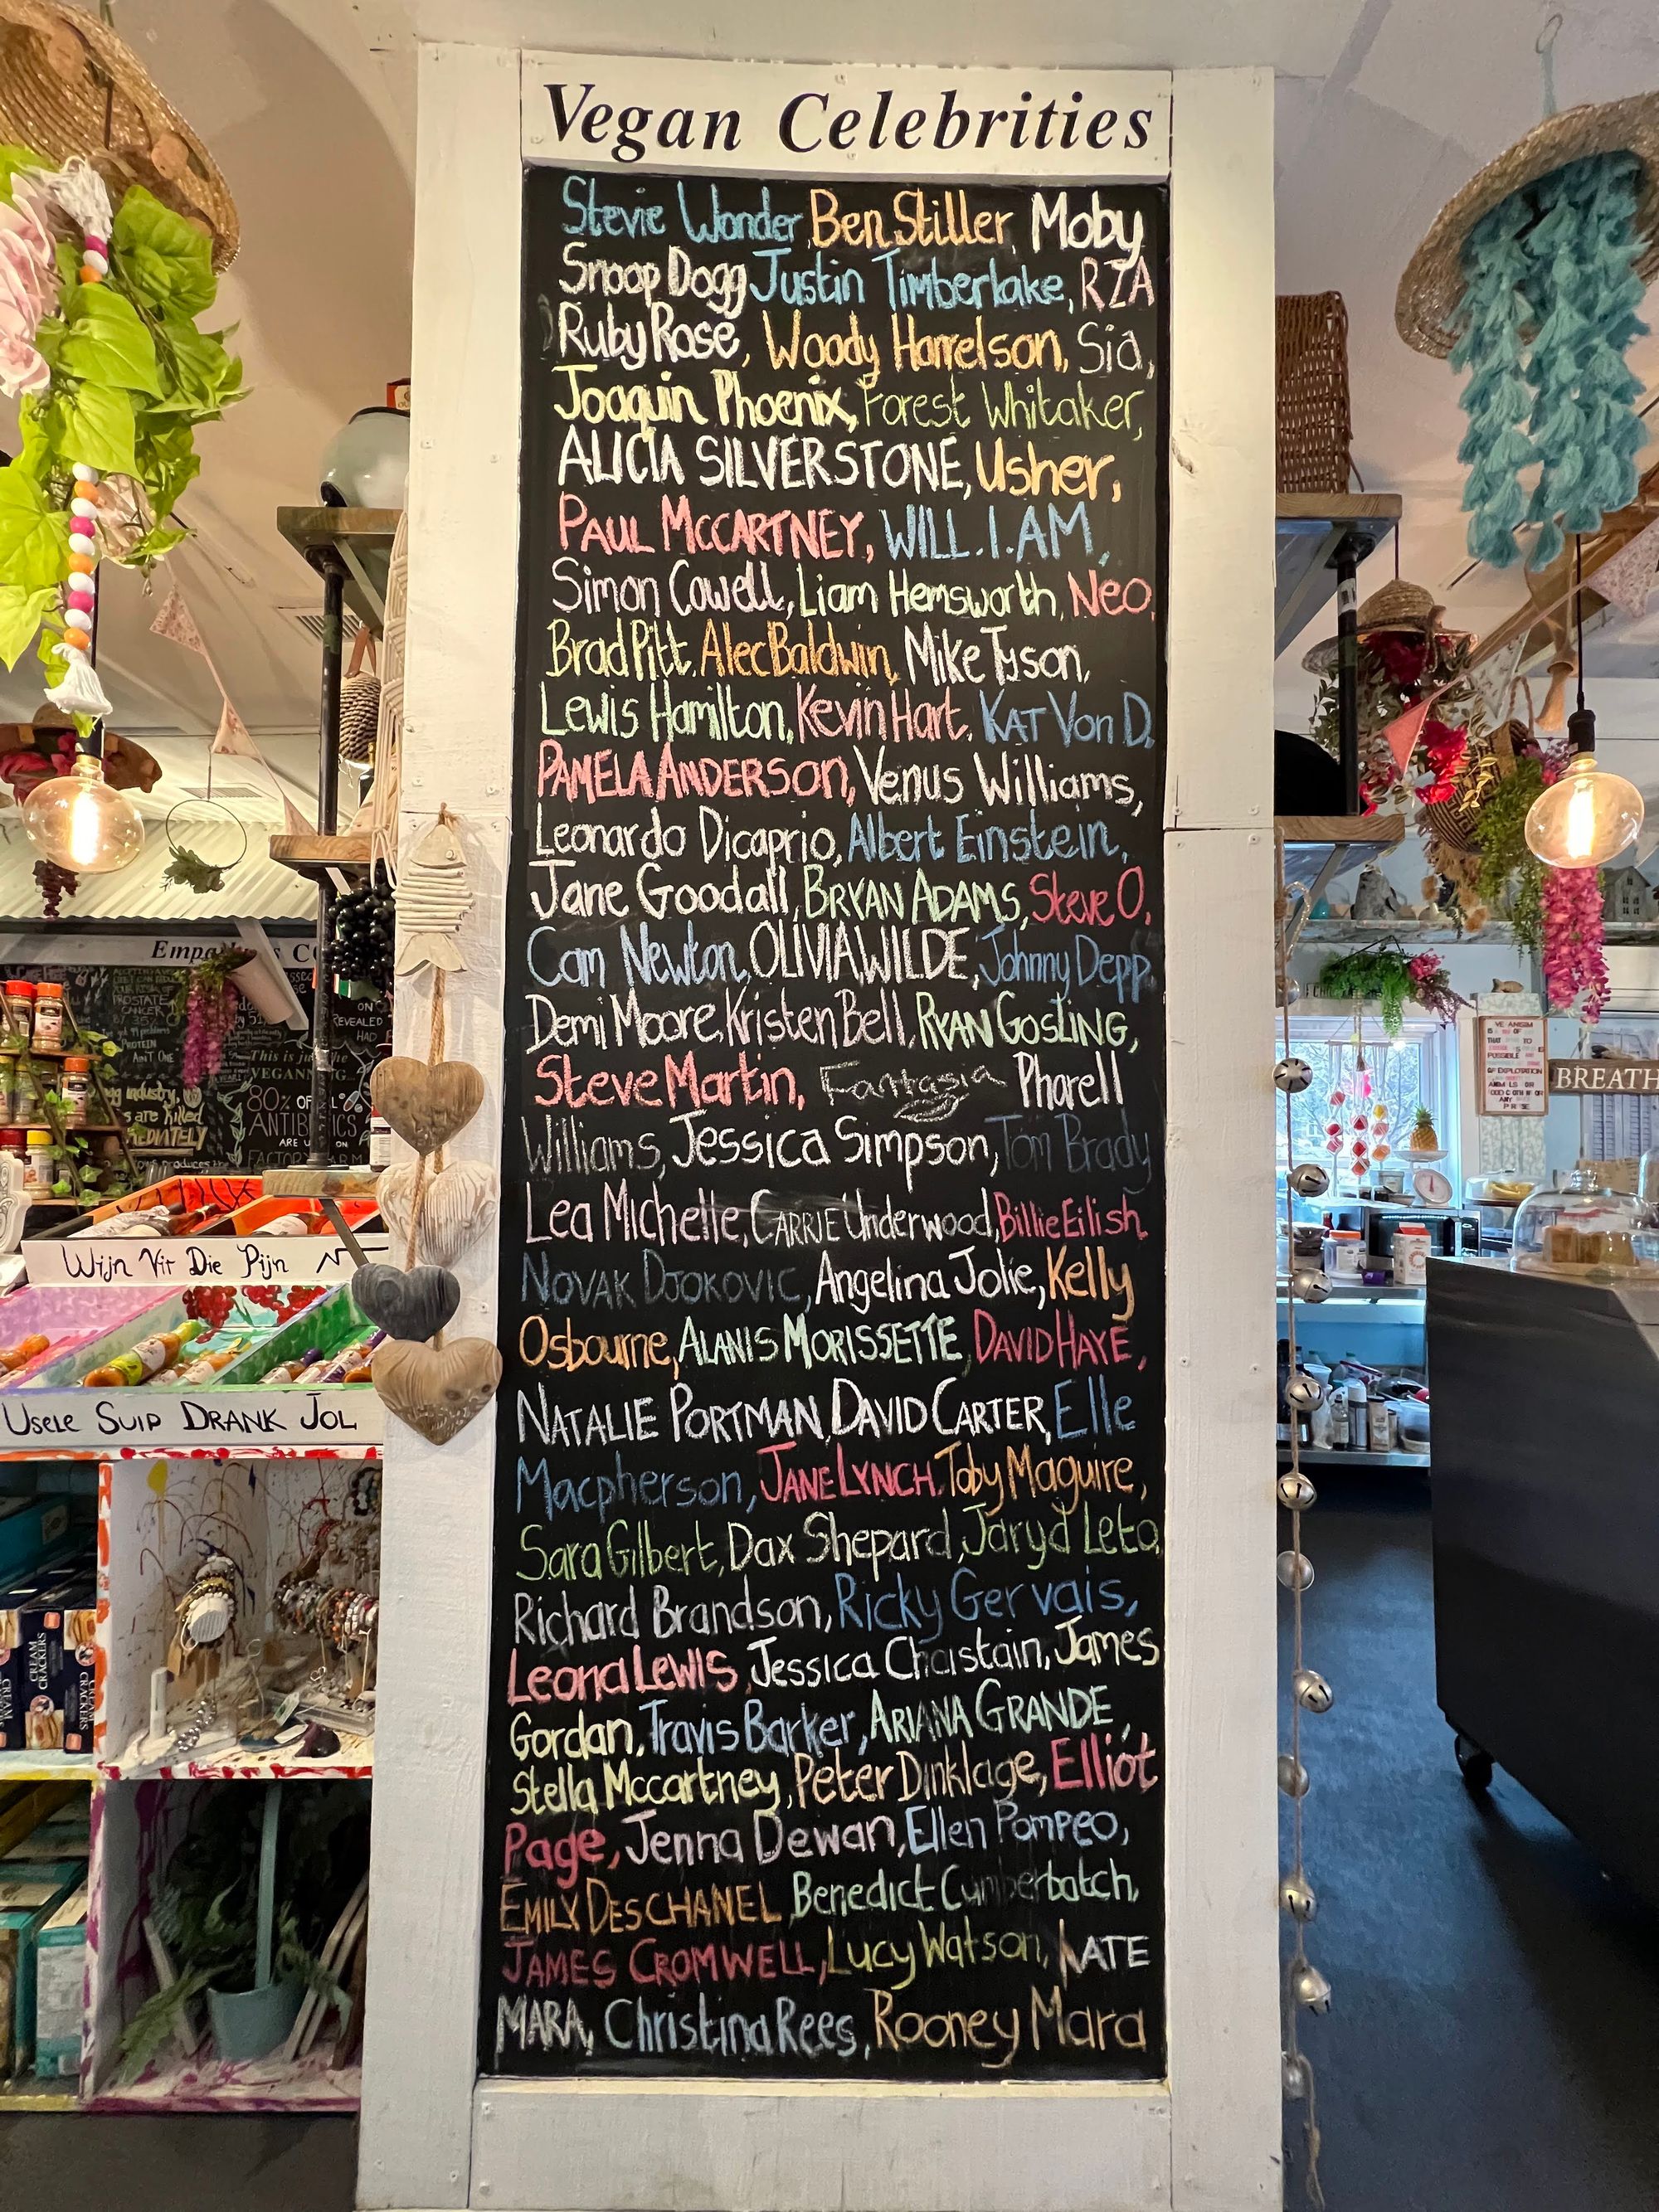 Vegan Celebrities
Stevie Wonder, Ben Stiller, Moby
Snoop Dogg Justin Timberlake, RZA
Ruby Rose, Woody Harrelson, Sia,
Joaquin Phoenix, Forest Whitaker,
ALICIA SILVERSTONE, Usher,
PAUL MCCARTNEY, WILL.I.AM,
Simon Cowell, Liam Hemsworth, Neo,
Brad Pitt, Alec Baldwin, Mike Tyson,
Lewis Hamilton, Kevin Hart, KAT Von D,
PAMELA ANDERSON, Venus Williams,
Leonardo Dicaprio, Albert Einstein,
Jane Goodall, BRYAN ADAMS, Steve O,
Cam Newton, OLIVIA WILDE, Johnny Depp,
Demi Moore, Kristen Bell, RYAN GOSLING,
Steve Martin, Fantasia Pharell
Williams, Jessica Simpson, Tom Brady
Lea Michelle, CARRIE Underwood, Billie Eilish
NOVAK DJOKOVIC, Angelina Jolie, Kelly
Osbourne, ALANIS MORISSETTE, DAVID HAYE,
NATALIE PORTMAN, DAVID CARTER, Elle
Macpherson, JANE LYNCH, Toby Maguire,
Sara Gilbert, Dax Shepard, Jaryd Leto,
Richard Brandson, Ricky Gervais,
Leona LEWIS, Jessica Chaistain, James
Gordan, Travis Barker, ARIANA GRANDE,
Stella Mccartney, Peter Dinklage, Elliot
Page, Jenna Dewan, Ellen Pompeo,
EMILY DESCHANEL, Benedict Cumberbatch,
JAMES CROMWELL, Lucy Watson, KATE
MARA, Christina Rees, Rooney Mara
PROSTATE
CANCER
PROTEIN
AIN'T ONE
REVEALED
HAD
This is just the
VEGANN
80% OF ALL
ANTIBIOTICS
ARE
FACTORY FARM
industry,
s are killed
Wijn Vir Die Pijn
Usele Suip DRANK JOL
CREAM
CRACKERS
BREATH